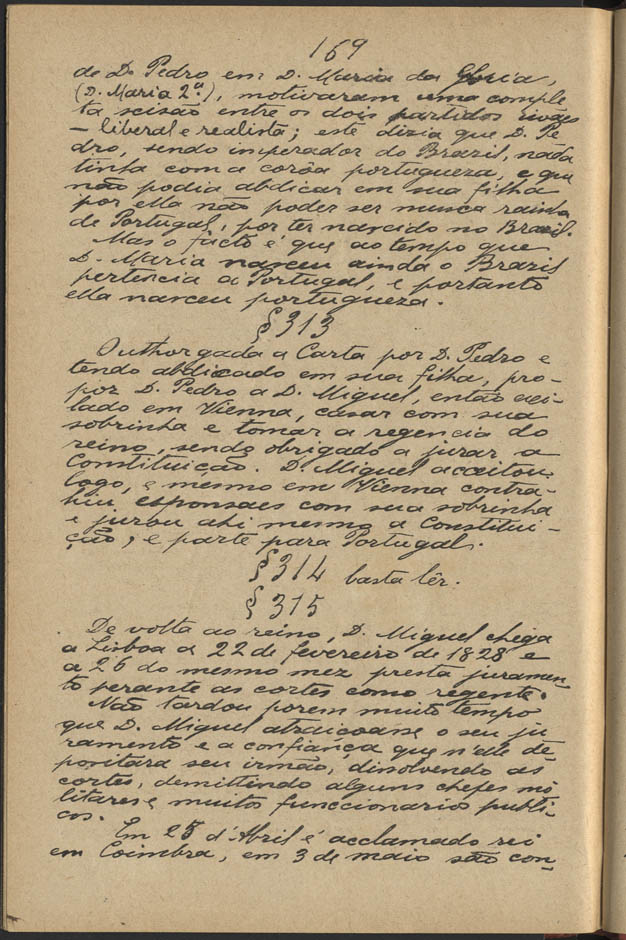 169
de D. Pedro em D. Maria da Gloria,
(D. Maria 2ª.), motivaram uma comple
ta scisão entre os dois partidos rivaes
– liberal e realista; este dizia que D. Pe
dro, sendo imperador do Brazil, nada
tinha com a corôa portugueza, e que
não podia abdicar em sua filha
por ella não poder ser nunca rainha
de Portugal, por ter nascido no Brazil.
Mas o facto é que ao tempo que
D. Maria nasceu ainda o Brazil
pertencia a Portugal, e portanto
ella nasceu portugueza.
§ 313
Outhorgada a Carta por D. Pedro e
tendo abdicado em sua filha, pro-
poz D. Pedro a D. Miguel, então exi-
lado em Vienna, casar com sua
sobrinha e tomar a regencia do
reino, sendo obrigado a jurar a
Constituição. D. Miguel acceitou
logo, e mesmo em Vienna contra-
hiu esponsaes com sua sobrinha
e jurou ahi mesmo a Constitui-
ção, e parte para Portugal.
§ 314 basta lêr.
§ 315
De volta ao reino, D. Miguel chega
a Lisboa a 22 de fevereiro de 1828 e
a 26 do mesmo mez presta juramen-
to perante as cortes como regente.
Não tardou porem muito tempo
que D. Miguel atraiçoasse o seu ju
ramento e a confiança que n'ele de-
positára seu irmão, dissolvendo as
cortes, demittindo alguns chefes mi
litares e muitos funccionarios publi-
cos.
Em 25 d'Abril é acclamado rei
em Coimbra, em 3 de maio são con-